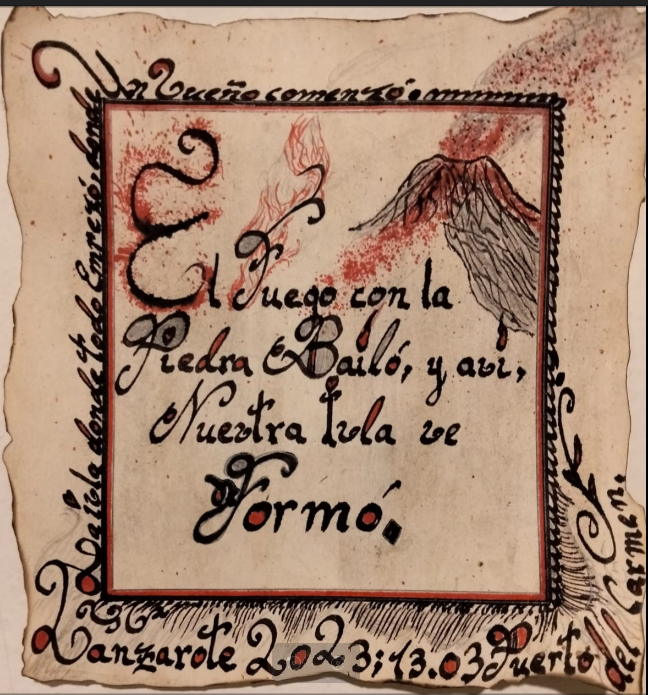 La isla donde todo Empezó, donde
Un Sueño comenzó
El Fuego con la
Piedra Bailó, y así,
Nuestra Isla se
Formó.
Lanzarote 2023; 13.03 Puerto
del Carmen.